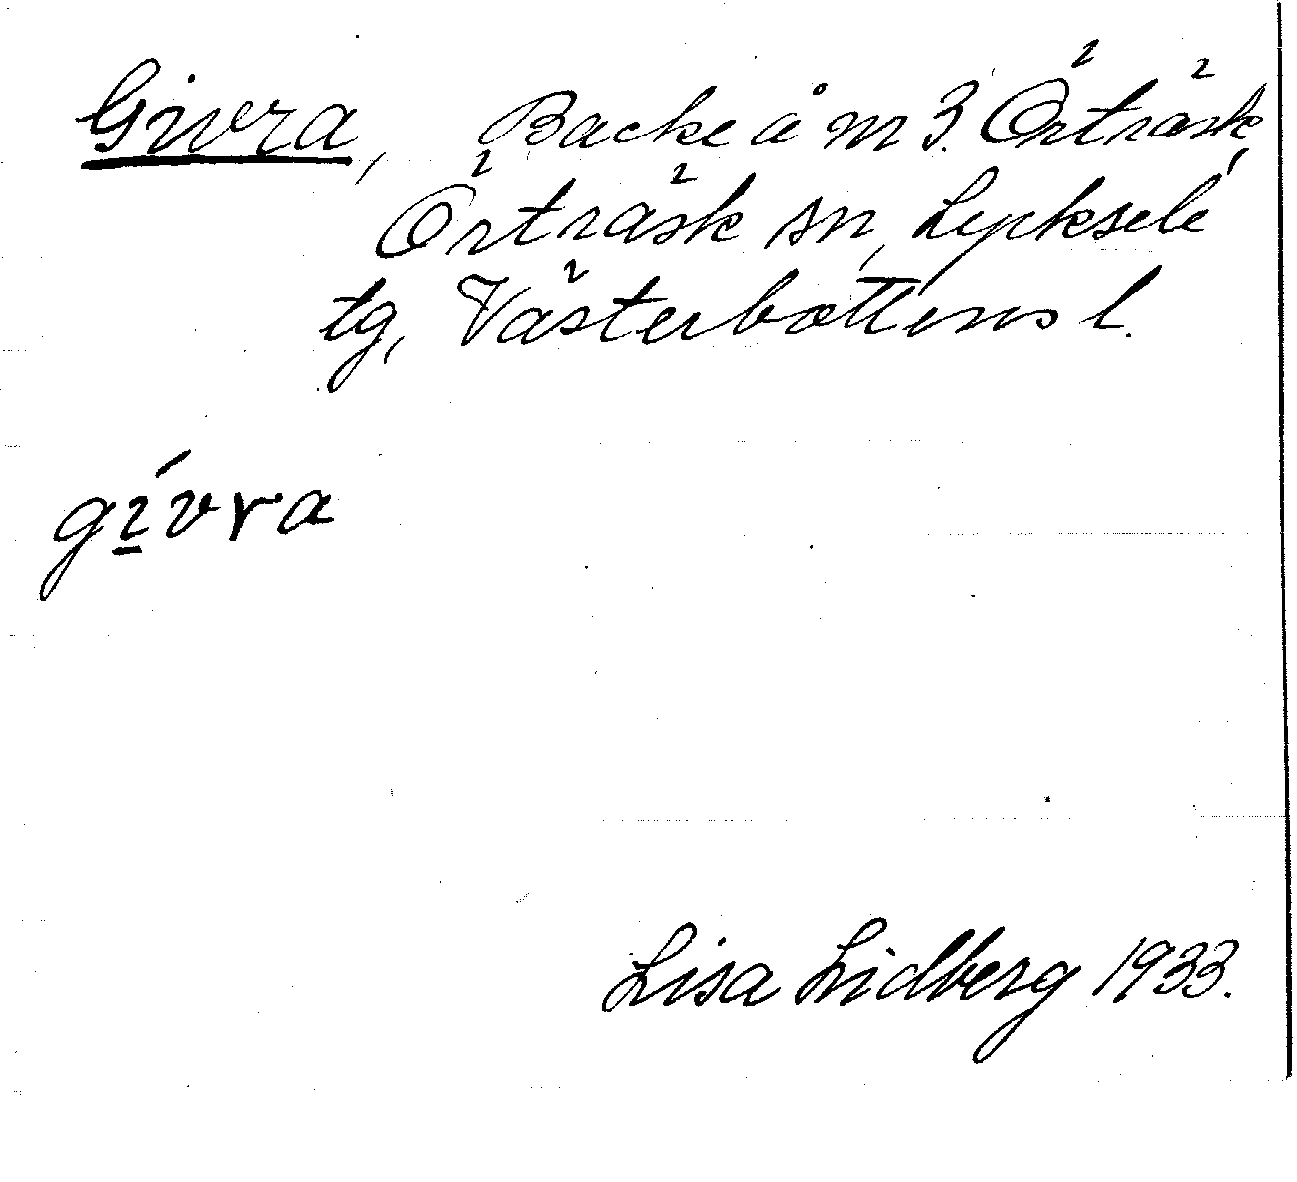 Givra, Backe å m 3. Örträsk,
Örträsk sn, Lycksele
tg, Västerbottens l.
gí̱vra
Lisa Lidberg 1933.